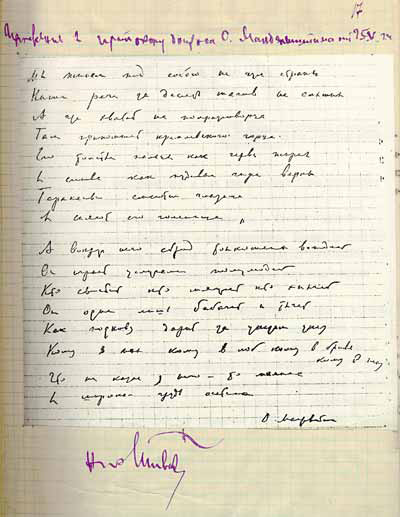 17
Приложение к протоколу допроса О. Мандельштама от 25/V 34
Мы живем под собою не чуя страны
Наши речи за десять шагов не слышны
А где хватит на полразговорца
Там припомнят кремлевского горца.
Его толстые пальцы как черви жирны
И слова как пудовые гири верны
Тараканьи смеются глазища
И сияют его голенища
А вокруг него сброд тонкошеих вождей
Он играет услугами полулюдей
Кто свистит кто мяучит кто хнычет
Он один лишь бабачит и тычет
Как подкову дарит за указом указ
Кому в пах кому в лоб кому в бровь
кому в глаз
Что ни казнь у него - то малина
И широкая грудь осетина
О. Мандельштам